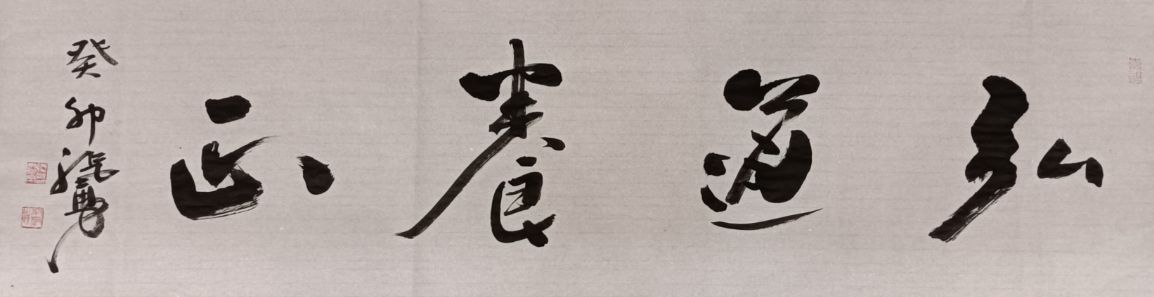 弘道養正
癸卯